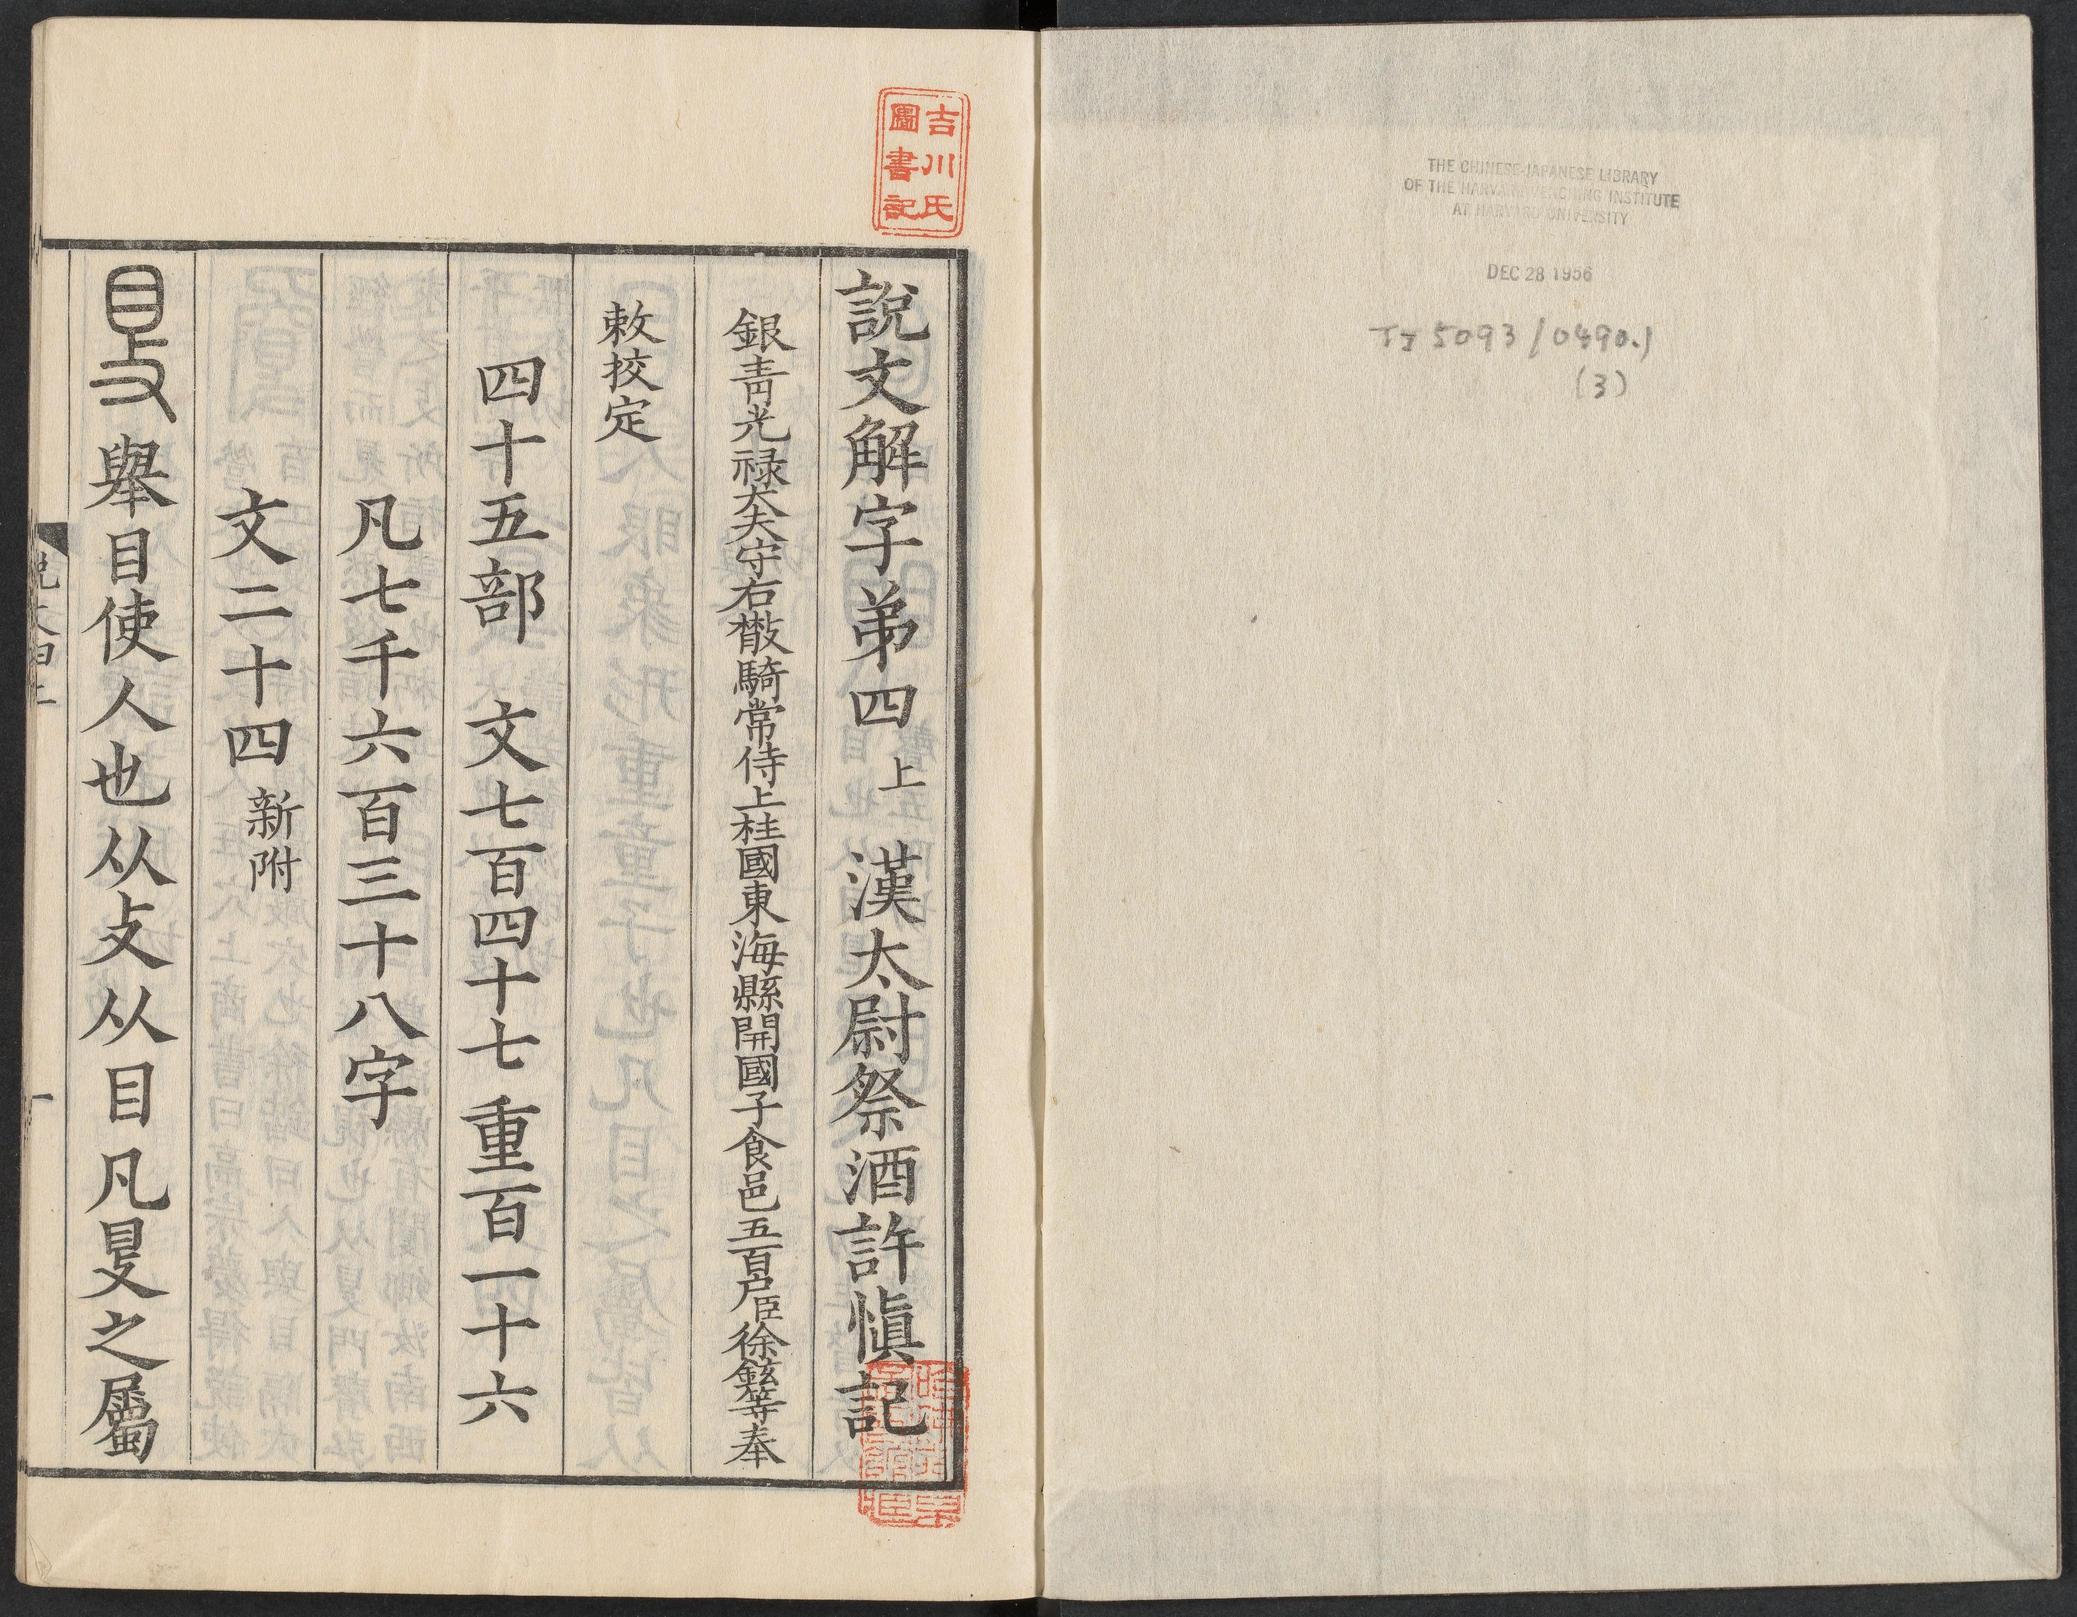 THE CHINESE-JAPANESE LIBRARY
OF THE HARVARD-YENCHING INSTITUTE
AT HARVARD UNIVERSITY
DEC 28 1956
TJ 5093/0490.1
(3)
吉川氏
圖書記
說文解字弟四上 漢太尉祭酒許慎記
銀青光祿大夫守右散騎常侍上柱國東海縣開國子食邑五百户臣徐鉉等奉
敕挍定
四十五部 文七百四十七 重百一十六
凡七千六百三十八字
文二十四新附
𥄎 舉目使人也从攴从目凡𥄎之屬
說文四上
一